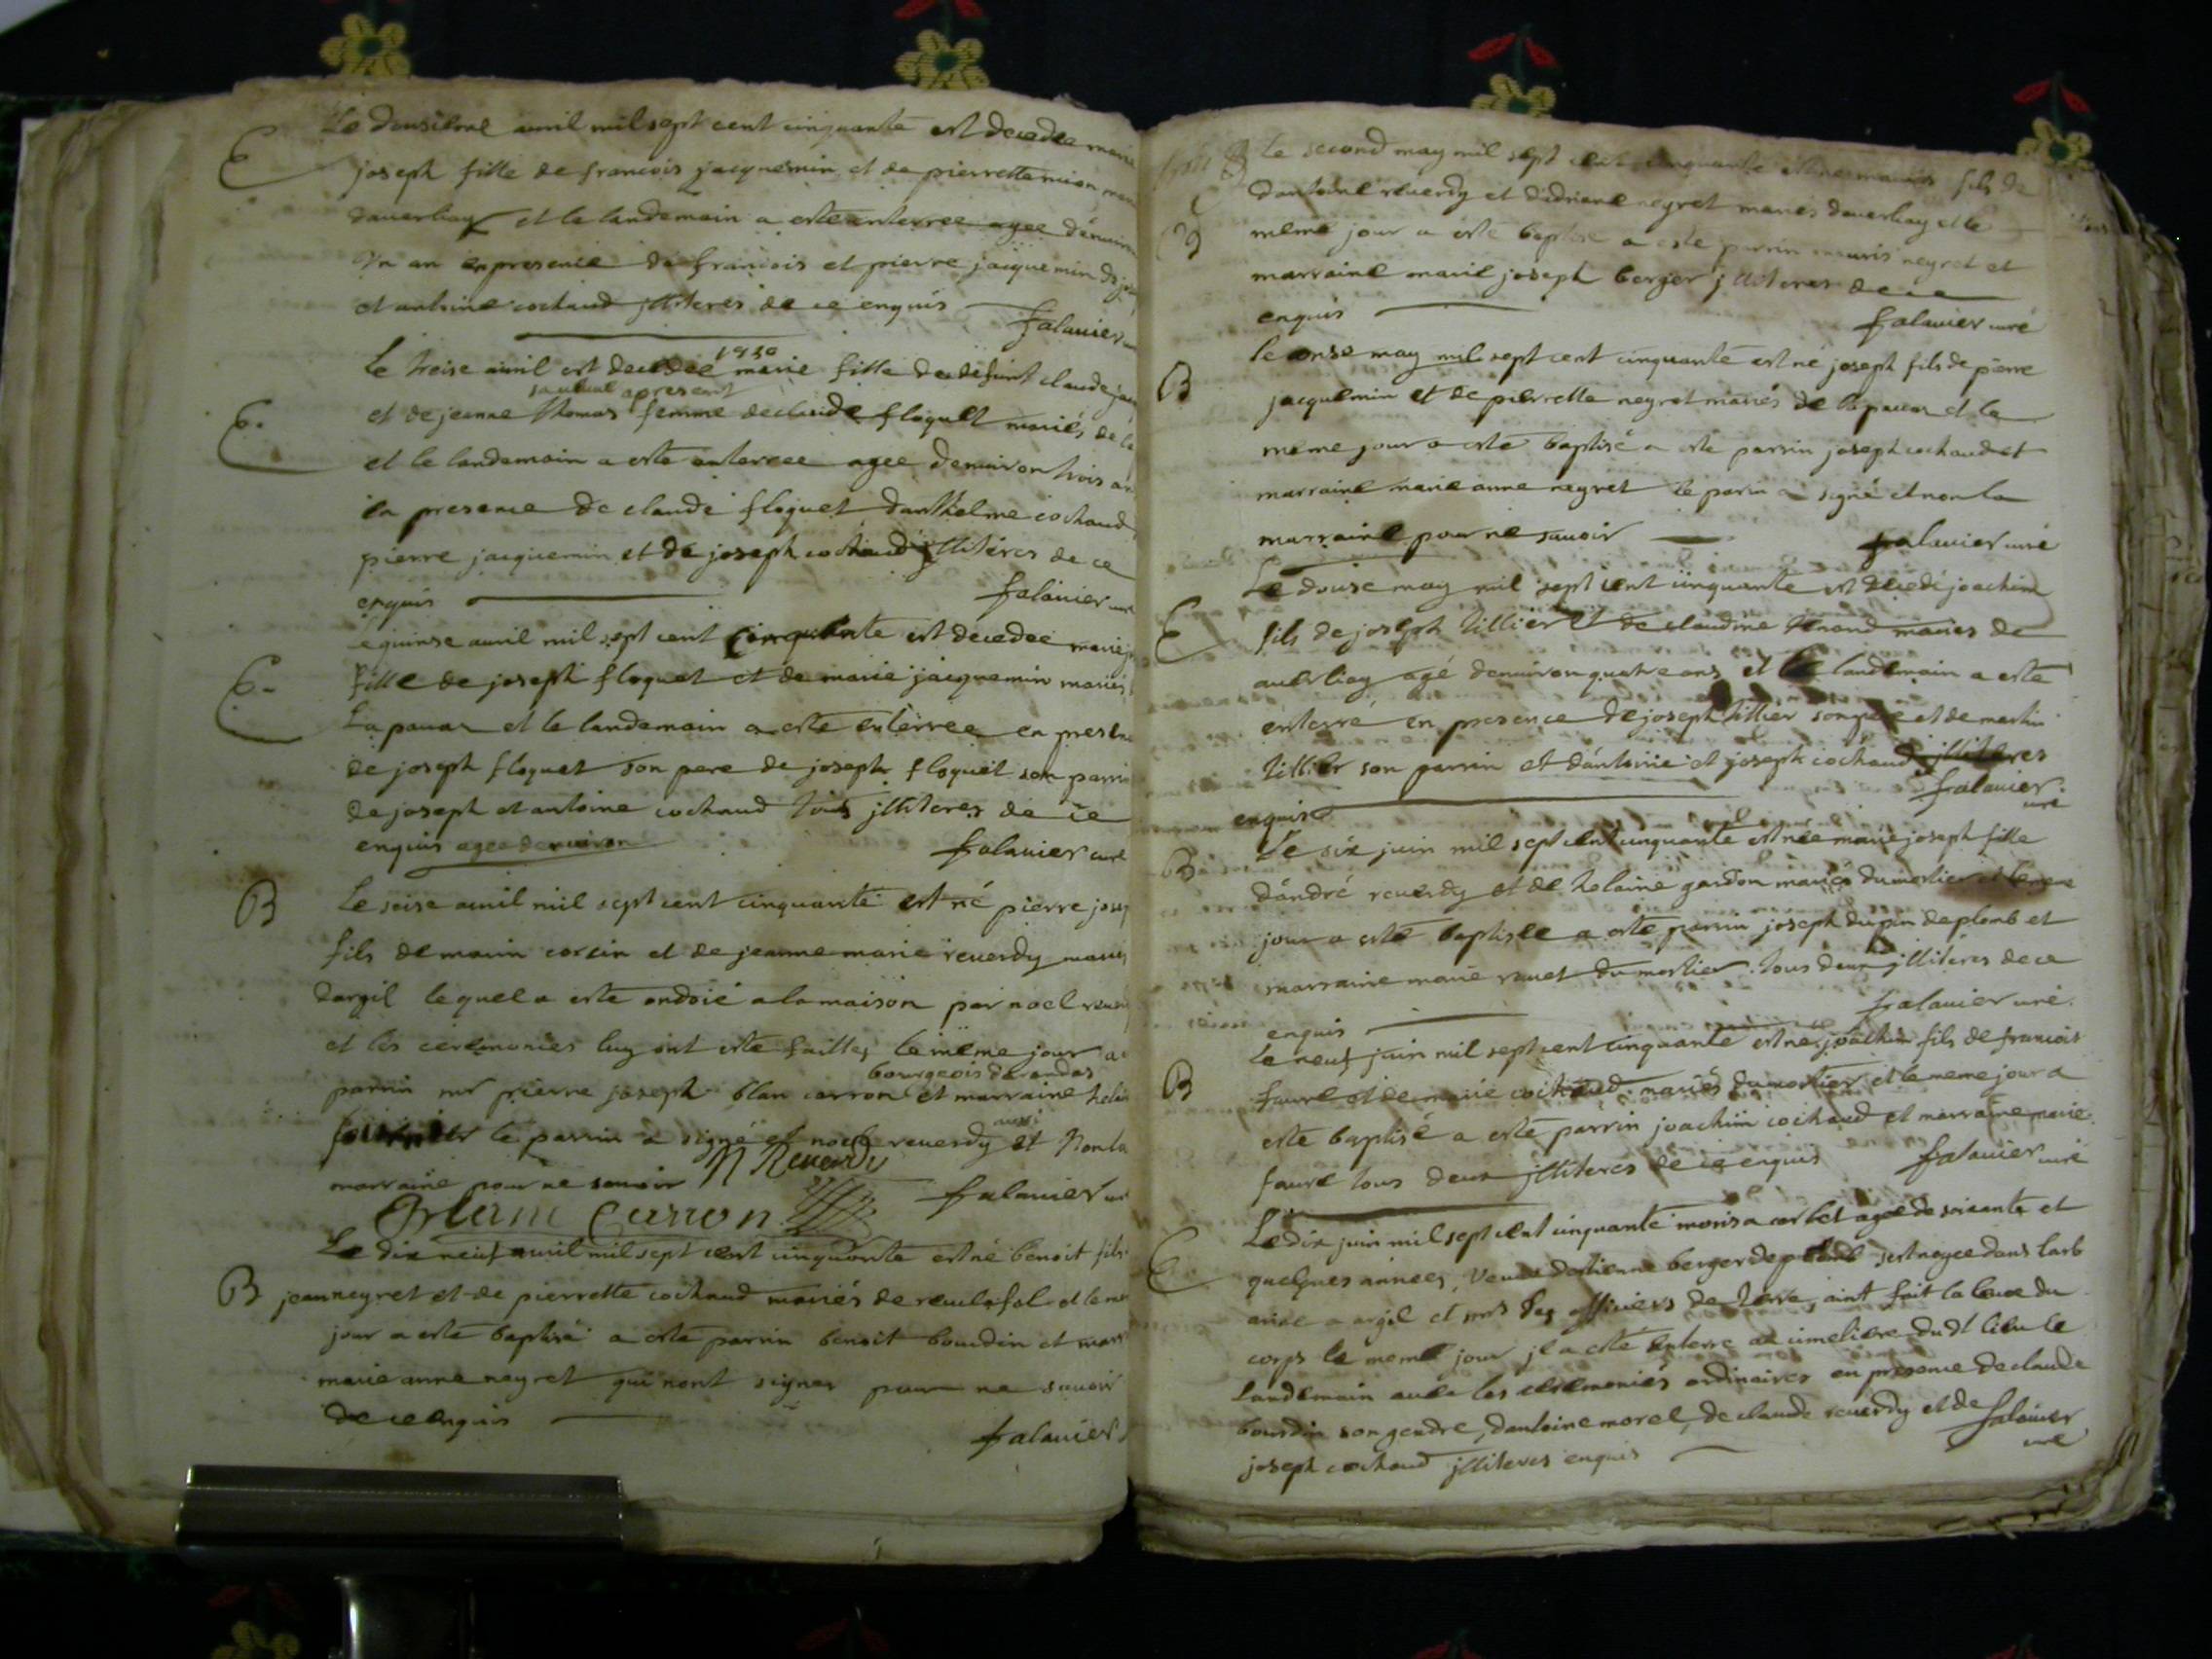 Le dousieme avril mil sept cent cinquante est decedee marie
E
joseph fille de francois jacquemin et de pierrette
daverliay et le landemain a esté enterree agee denviron
un an en presence de francois et pierre jacquemin
et antoine cochaud jlliteres de ce enquis
falavier
Le treise avril 1750 est decedee marie fille de defunt claude
servant apresent
E.
et de jeanne thomas femme de claude floquet mariés de la
et le landemain a esté enterree agee denviron trois an
en presence de claude floquet danthelme cochaud
pierre jacquemin et de joseph cochaud jlliteres de ce
enquis falavier curé
Le quinse avril mil sept cent cinquante est decedee marie
E.
fille de joseph floquet et de marie jacquemin mariés
La pavas et le landemain a esté enterree en presence
de joseph floquet son pere de joseph floquet son parrin
de joseph et antoine cochaud tous jlliteres de ce
enquis agee denviron falavier curé
B
Le seise avril mil sept cent cinquante est né pierre joseph
fils de marin corsin et de jeanne marie reverdy mariés
dargil lequel a esté ondoié a la maison par noel
et les ceremonies luy ont esté faittes le même jour a
bourgeois
parrin mr pierre joseph blan carron et marraine
le parrin a signé et noel reverdy aussi et non la
marraine pour ne savoir N Reverdy
falavier curé
Carron
Le dix neuf avril mil sept cent cinquante est né benoit fils
B
jean neyret et de pierrette cochaud mariés de et le
jour a esté baptisé a esté parrin benoit bourdin et
marie anne neyret qui nont signer pour ne savoir
de ce enquis
falavier
B
Le second may mil sept cent cinquante est né fils de
dantoine reverdy et neyret mariés daverliay et le
même jour a esté baptisé a esté parrin neyret et
marraine marie joseph berger jlliteres de ce
enquis falavier curé
B
le onse may mil sept cent cinquante est né joseph fils de pierre
jacquemin et de pierrette neyret mariés de la pavas et le
meme jour a esté baptisé a esté parrin joseph cochaud et
marraine marie anne neyret le parin a signé et non la
marraine pour ne savoir falavier curé
Le douse may mil sept cent cinquante est decedé joachim
E
fils de joseph tillier et de claudine mariés de
averliay agé denviron quatre ans et le landemain a esté
enterré en presence de joseph tillier son pere et de martin
tillier son parrin et dantoine et joseph cochaud jlliteres
enquis falavier curé
B
Le six juin mil sept cent cinquante est née marie joseph fille
dandré reverdy et de helaine gardon mariés du mortier et le
jour a esté baptisee a esté parrin joseph dupin de plomb et
marraine marie du mortier tous deux jlliteres de ce
enquis falavier curé.
B
Le neuf juin mil sept cent cinquante est né joachim fils de francois
faure et de marie cochaud mariés du mortier et le meme jour a
esté baptisé a esté parrin joachim cochaud et marraine marie
faure tous deux jlliteres de ce enquis falavier curé
E
Le dix juin mil sept cent cinquante agee de soixante et
quelques annees, veuve destienne berger de plomb sest noyee dans
a argil et mrs les officiers de terre, aiant fait la levee du
corps le meme jour, esté enterre au cimetiere dudt lieu le
landemain avec les ceremonies ordinaires en presence de claude
bourdin son gendre, dantoine morel, de claude reverdy et de
joseph cochaud jlliteres enquis falavier curé